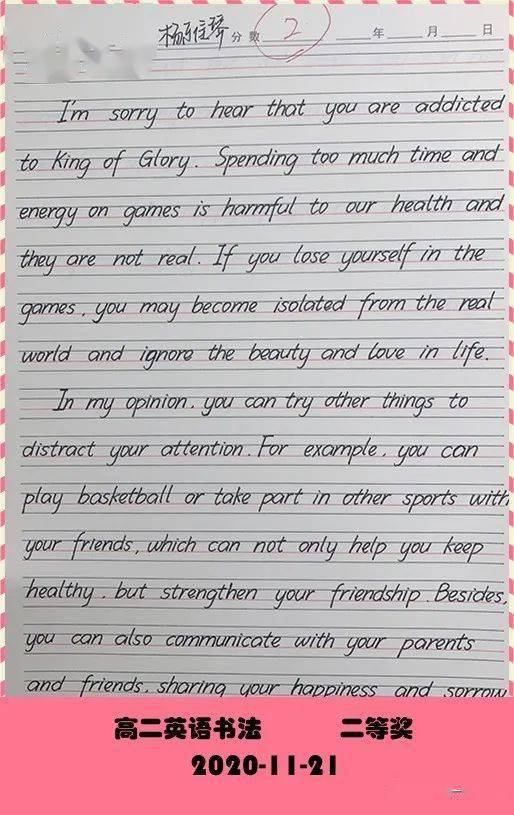 分数 2 年 月 日
I'm sorry to hear that you are addicted
to King of Glory. Spending too much time and
energy on games is harmful to our health and
they are not real. If you lose yourself in the
games, you may become isolated from the real
world and ignore the beauty and love in life.
In my opinion, you can try other things to
distract your attention. For example, you can
play basketball or take part in other sports with
your friends, which can not only help you keep
healthy, but strengthen your friendship. Besides,
you can also communicate with your parents
and friends, sharing your happiness and sorrow
高二英语书法 二等奖
2020-11-21